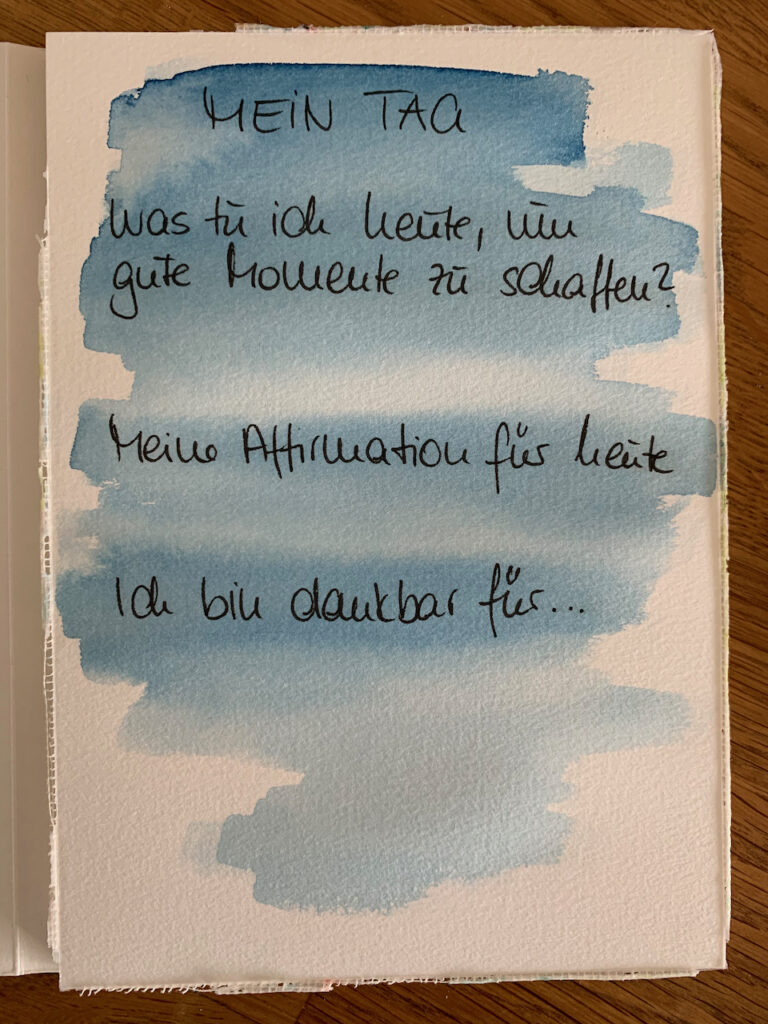 MEIN TAG
Was tu ich heute, um
gute Momente zu schaffen?
Meine Affirmation für heute
Ich bin dankbar für...